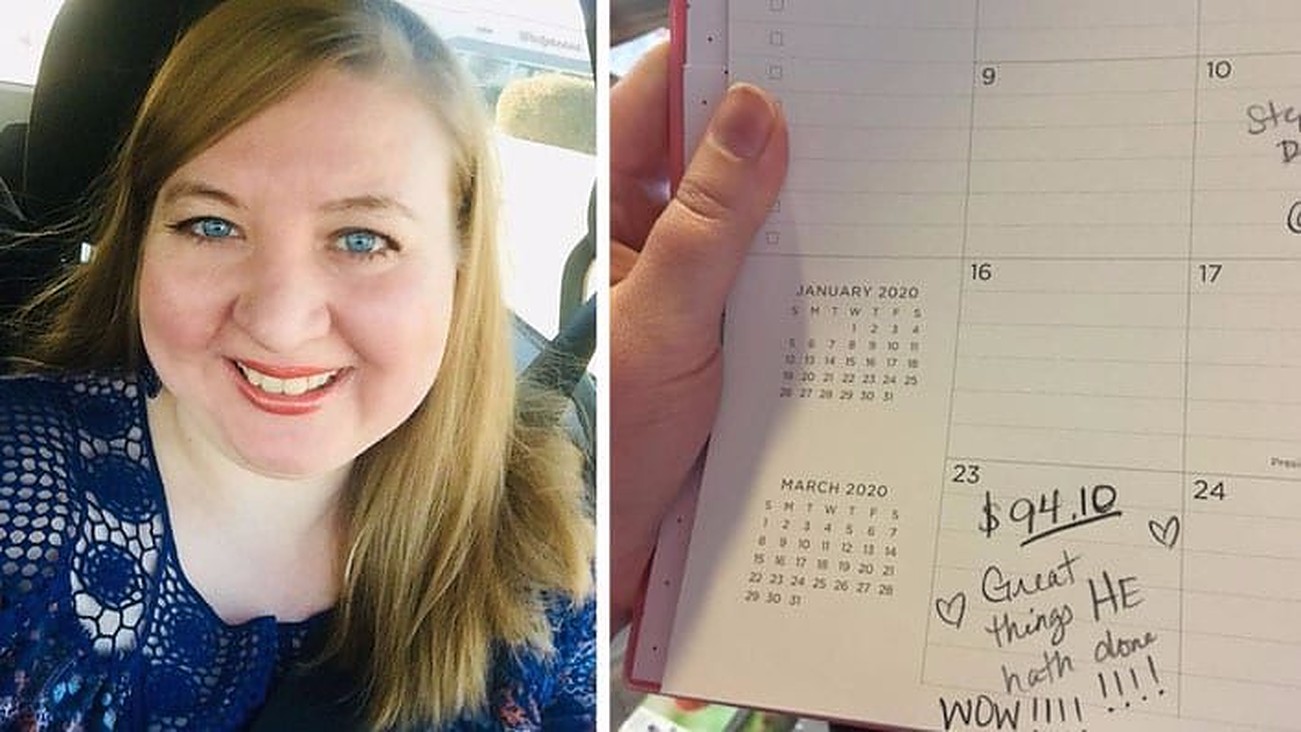 9
10
16
17
JANUARY 2020
S M T W T F S
1 2 3 4
5 6 7 8 9 10 11
12 13 14 15 16 17 18
19 20 21 22 23 24 25
26 27 28 29 30 31
MARCH 2020
S M T W T F S
1 2 3 4 5 6 7
8 9 10 11 12 13 14
15 16 17 18 19 20 21
22 23 24 25 26 27 28
29 30 31
23
24
$94.10
Great
things HE
hath done
WOW!!!! !!!!